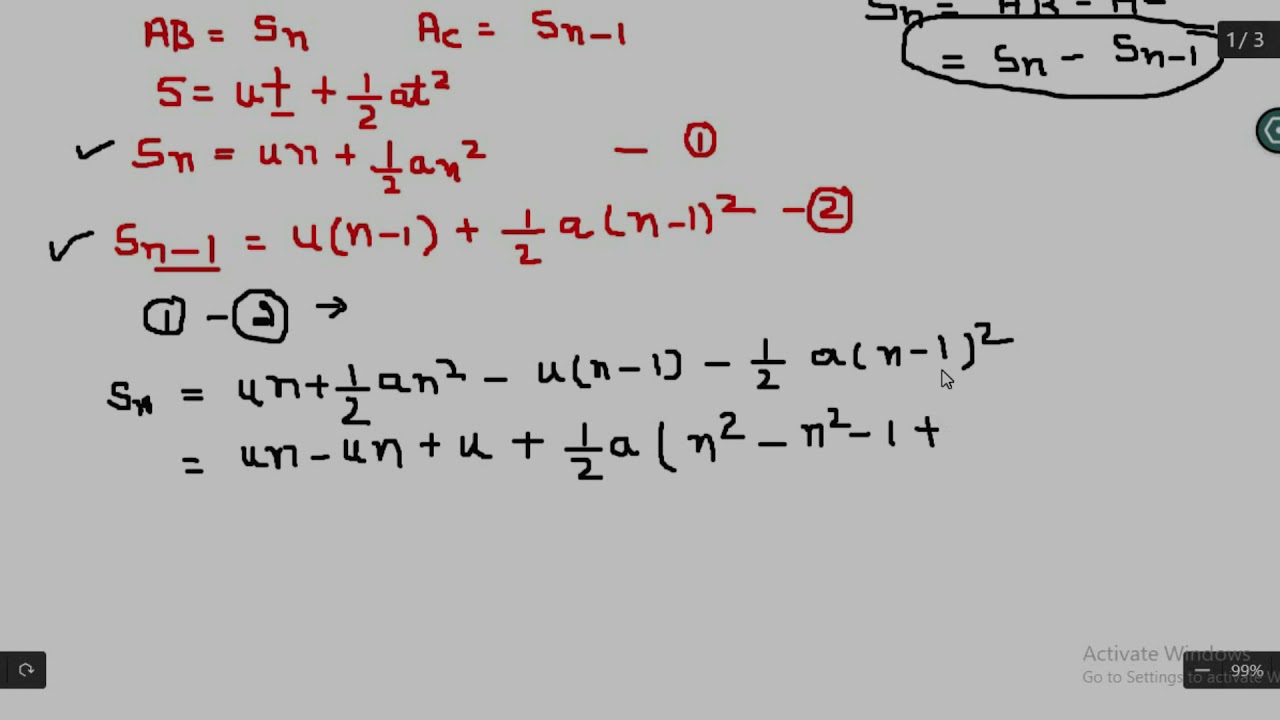 AB = Sn     Ac = Sn-1
Sn = AB - A
= Sn - Sn-1
1 / 3
S = ut + 1/2 at²
Sn = un + 1/2 an² - ①
Sn-1 = u(n-1) + 1/2 a(n-1)² - ②
① - ② →
Sn = un + 1/2 an² - u(n-1) - 1/2 a(n-1)²
= un - un + u + 1/2 a(n² - n² - 1 +
Activate Windows
Go to Settings to activate W
99%